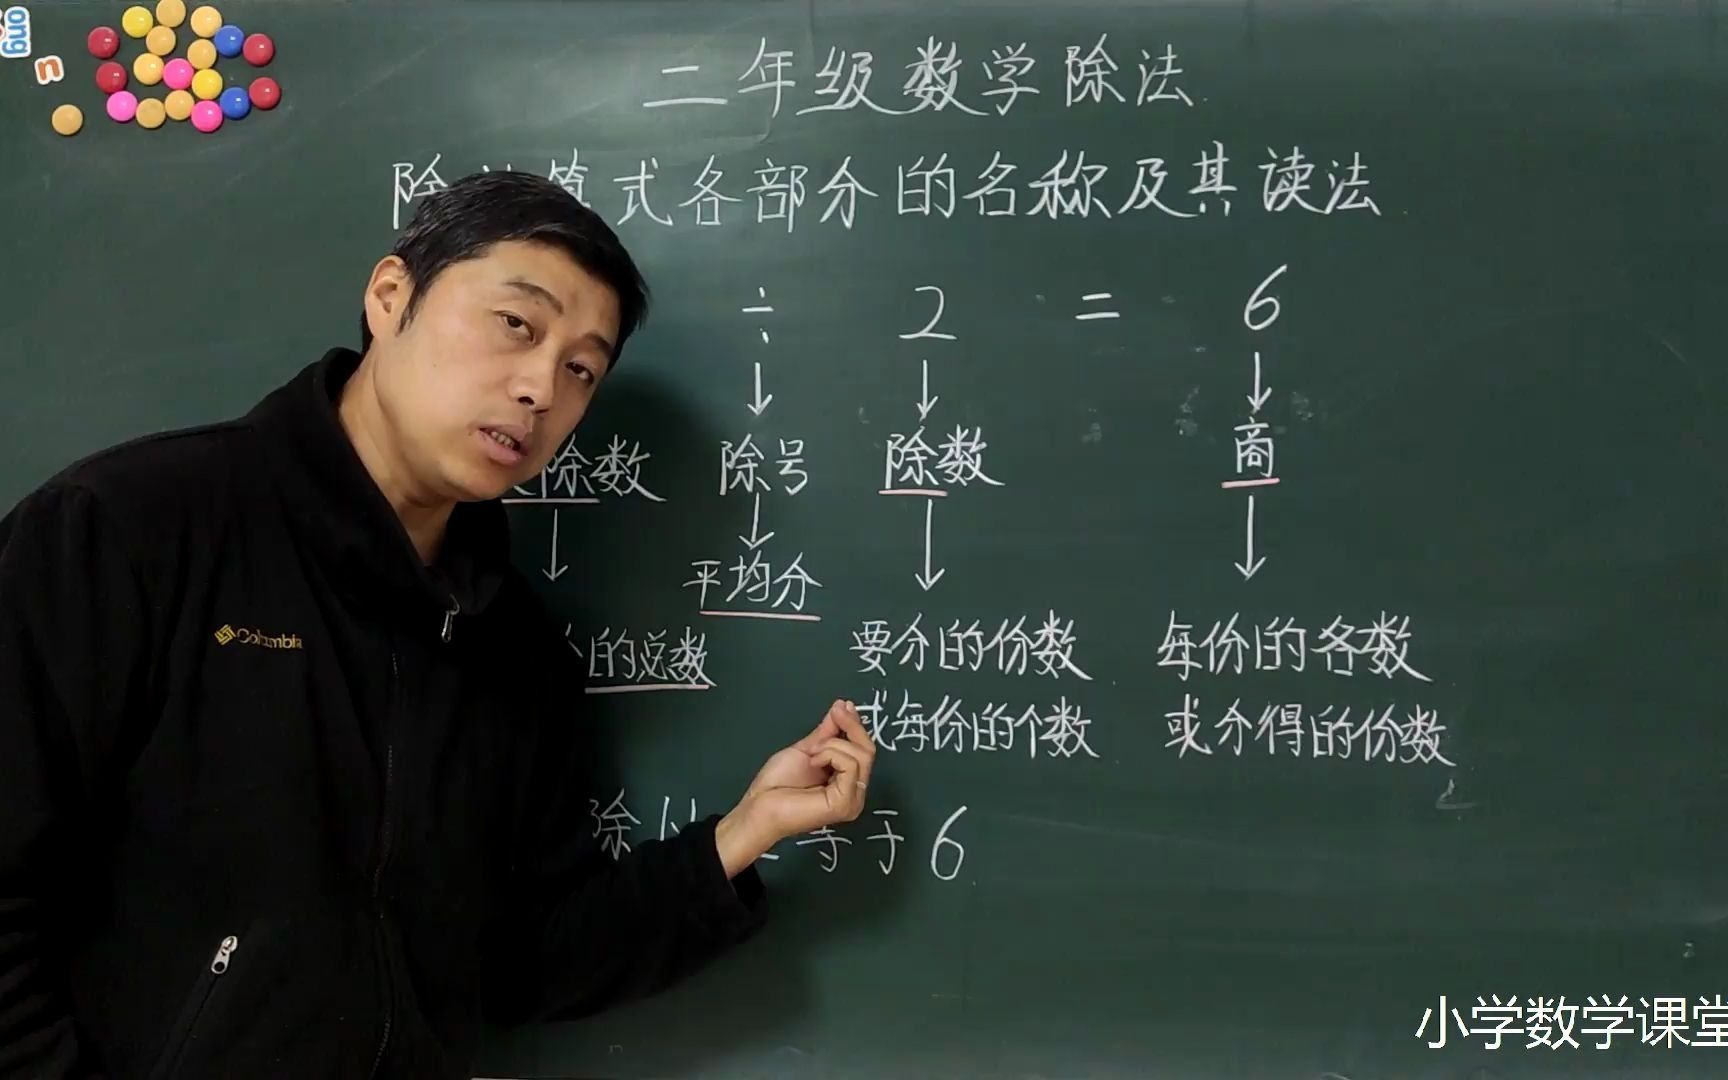 ong
n
二年级数学除法
除法算式各部分的名称及其读法
÷ 2 = 6
除数 除号 除数 商
平均分
的总数 要分的份数 每份的各数
或每份的个数 或分得的份数
除以 等于6
Columbia
小学数学课堂